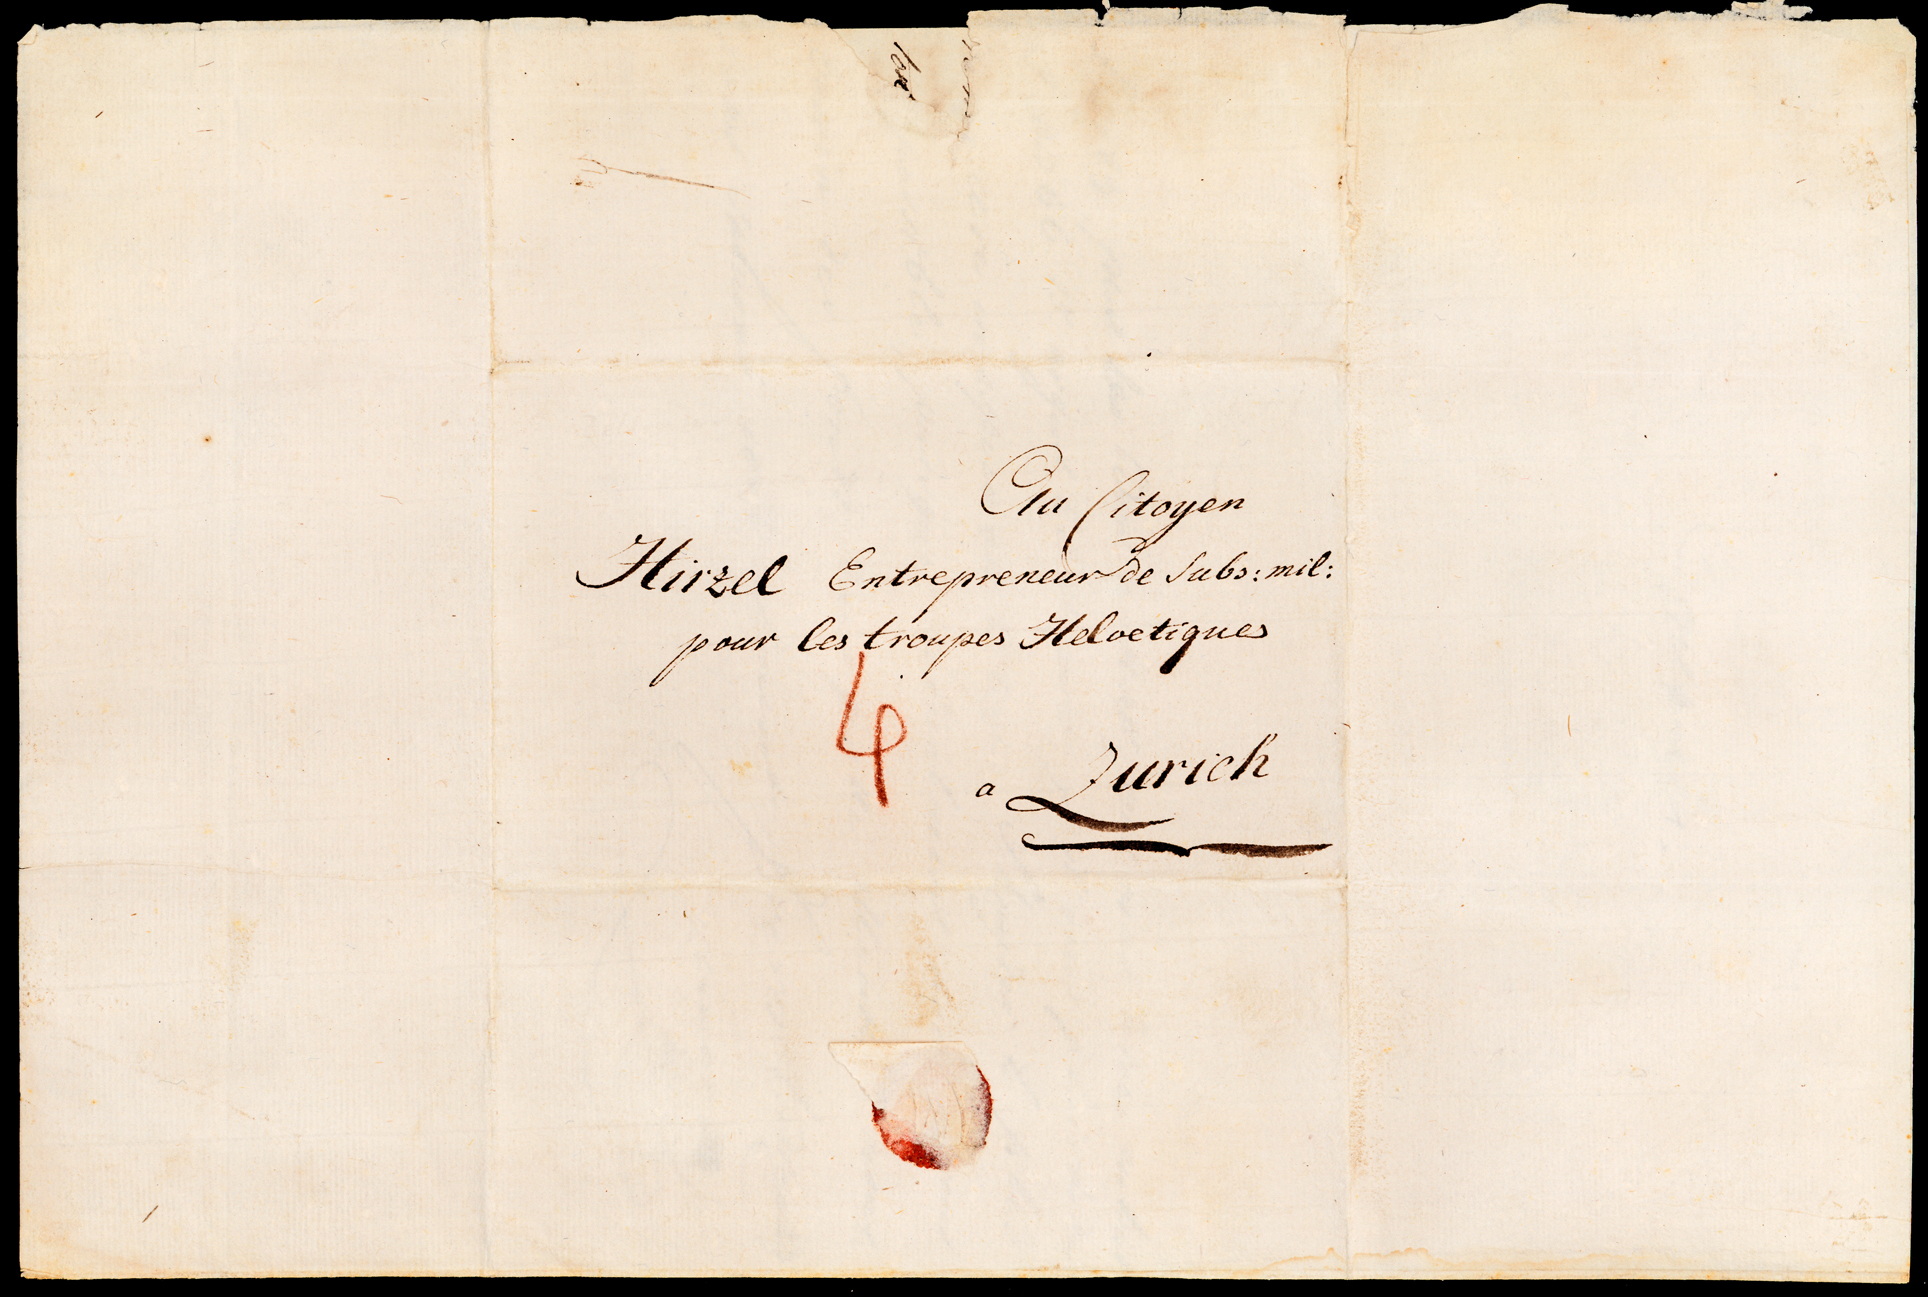 Au Citoyen
Hirzel Entrepreneur de Subs: mil:
pour les troupes Helvetiques
4
a Zurich